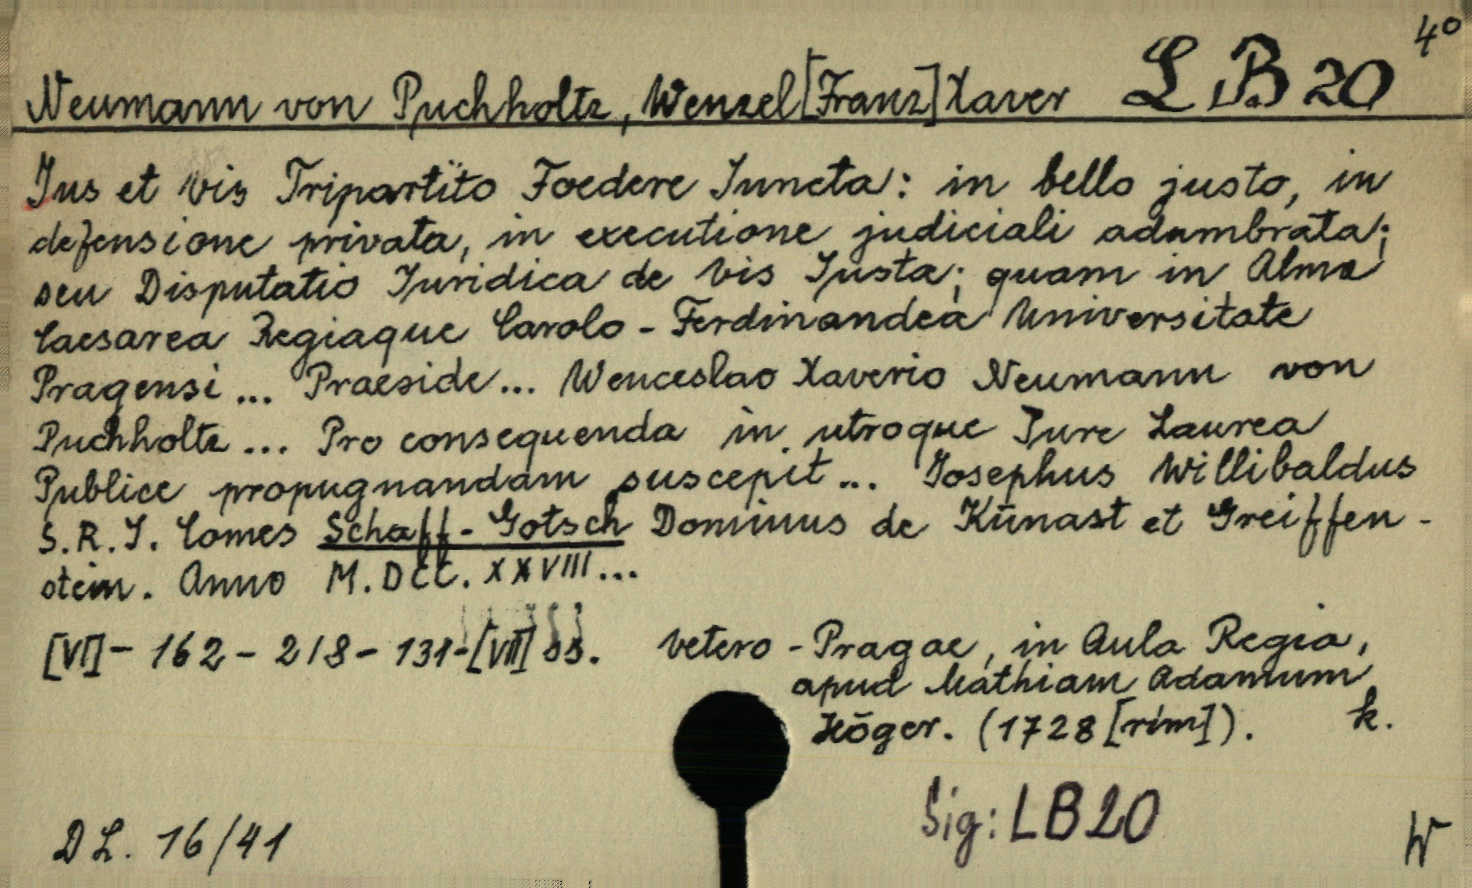 4°
Neumann von Puchholtz, Wenzel [Franz] Xaver L B 20
Jus et Vis Tripartïto Foedere Juncta: in bello justo, in
defensione privata, in executione judiciali adumbrata;
seu Disputatio Juridica de Vis Justa; quam in Alma
Caesarea Regiaque Carolo - Ferdinandea Universitate
Pragensi ... Praeside ... Wenceslao Xaverio Neumann von
Puchholtz ... Pro consequenda in utroque Jure Laurea
Publice propugnandam suscepit ... Josephus Willibaldus
S. R. J. Comes Schaff - Gotsch Dominus de Künast et Greiffen -
stein. Anno M. DCC. XXVIII ...
[VI] - 162 - 218 - 131 - [VII] ss. Vetero - Pragae, in Aula Regia,
apud Mathiam Adamum
Höger. (1728 [rím]). k.
Sig: LB20
D L. 16/41 W